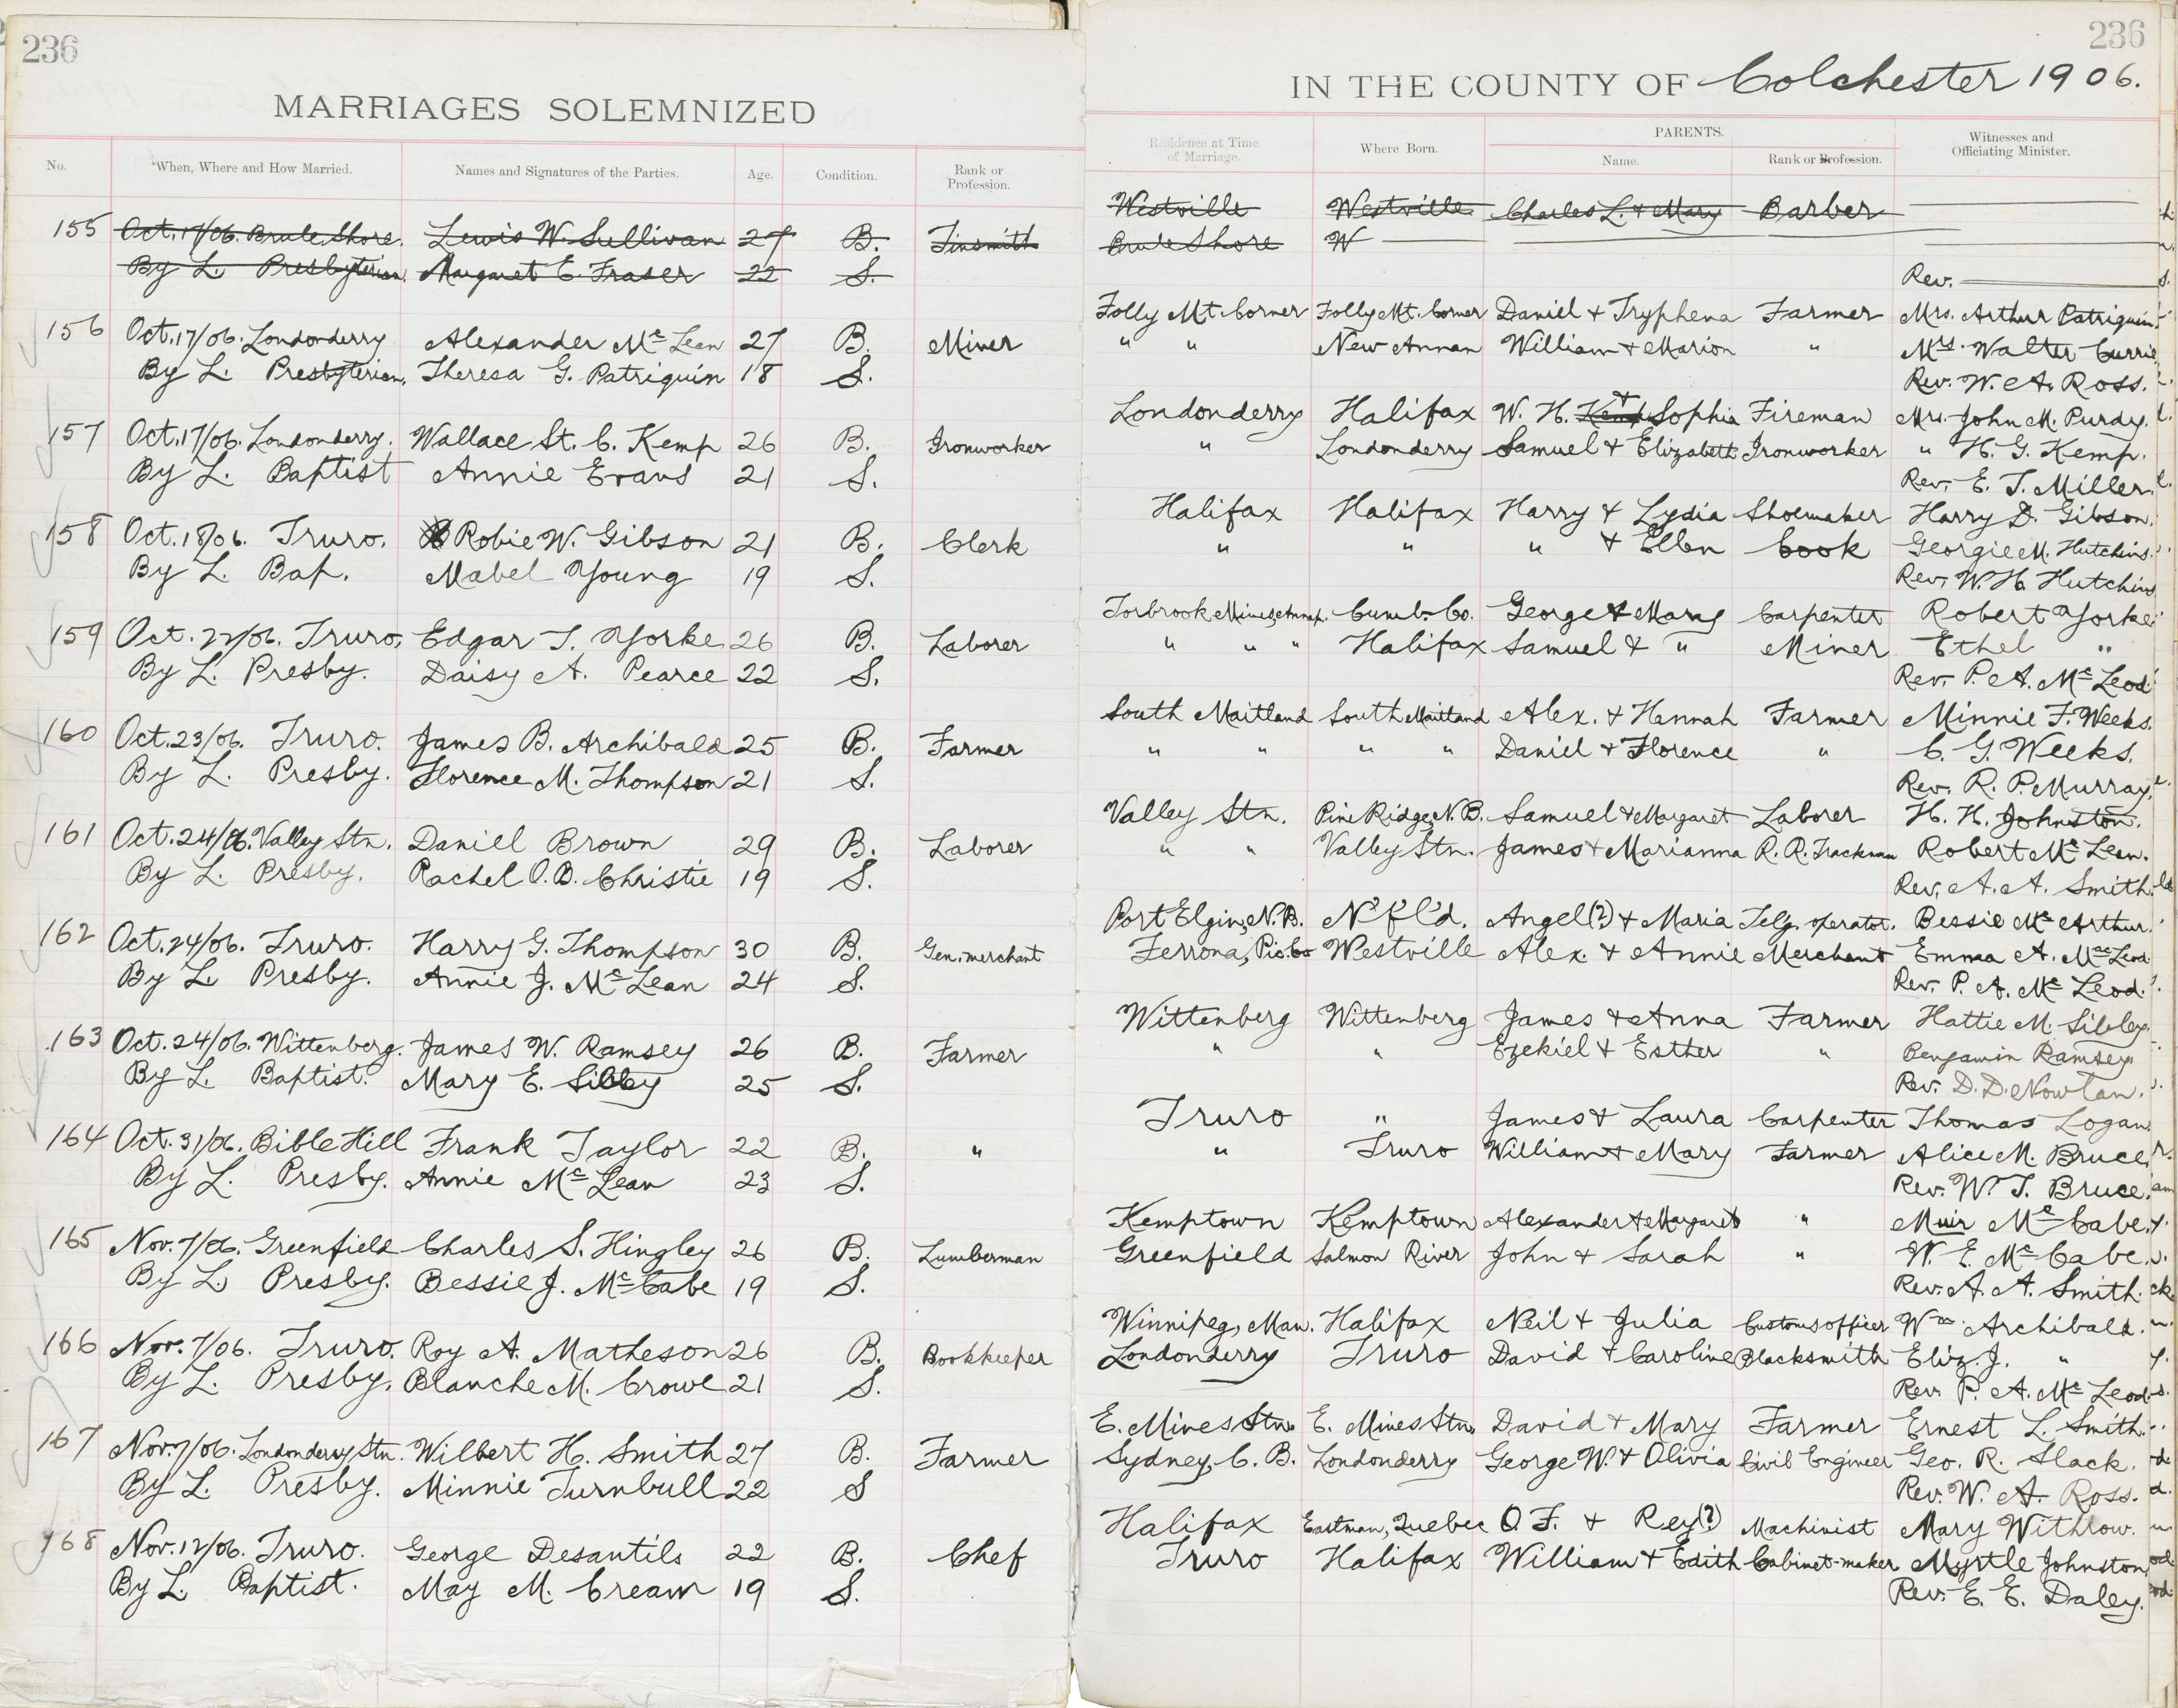 236
MARRIAGES SOLEMNIZED
No. When, Where and How Married. Names and Signatures of the Parties. Age. Condition. Rank or Profession.
155 Oct. 17/06. Brule Shore. Lewis W. Sullivan 27 B. Tinsmith
By L. Presbyterian. Margaret E. Fraser 22 S.
156 Oct. 17/06. Londonderry Alexander Mc Lean 27 B. Miner
By L. Presbyterian. Theresa G. Patriquin 18 S.
157 Oct. 17/06. Londonderry. Wallace St. C. Kemp 26 B. Ironworker
By L. Baptist Annie Evans 21 S.
158 Oct. 18/06. Truro. Robie W. Gibson 21 B. Clerk
By L. Bap. Mabel Young 19 S.
159 Oct. 22/06. Truro, Edgar T. Yorke 26 B. Laborer
By L. Presby. Daisy A. Pearce 22 S.
160 Oct. 23/06. Truro. James B. Archibald 25 B. Farmer
By L. Presby. Florence M. Thompson 21 S.
161 Oct. 24/06. Valley Stn. Daniel Brown 29 B. Laborer
By L. Presby. Rachel O. B. Christie 19 S.
162 Oct. 24/06. Truro. Harry G. Thompson 30 B. Gen. merchant
By L. Presby. Annie J. Mc Lean 24 S.
163 Oct. 24/06. Wittenberg. James W. Ramsey 26 B. Farmer
By L. Baptist. Mary E. Sibley 25 S.
164 Oct. 31/06. Bible Hill Frank Taylor 22 B. "
By L. Presby. Annie Mc Lean 23 S.
165 Nov. 7/06. Greenfield Charles S. Hingley 26 B. Lumberman
By L. Presby. Bessie J. Mc Cabe 19 S.
166 Nov. 7/06. Truro. Roy A. Matheson 26 B. Bookkeeper
By L. Presby. Blanche M. Crowe 21 S.
167 Nov. 7/06. Londonderry Stn. Wilbert H. Smith 27 B. Farmer
By L. Presby. Minnie Turnbull 22 S
168 Nov. 12/06. Truro. George Desantils 22 B. Chef
By L. Baptist. May M. Cream 19 S.
236
IN THE COUNTY OF Colchester 1906.
Residence at Time of Marriage. Where Born. PARENTS. Name. Rank or Profession. Witnesses and Officiating Minister.
Westville Westville Charles L. & Mary Barber
Brule Shore W
Rev.
Folly Mt. Corner Folly Mt. Corner Daniel & Tryphena Farmer Mrs. Arthur Patriquin
" " New Annan William & Marion " Mrs. Walter Currie
Rev. W. A. Ross.
Londonderry Halifax W. H. Kemp & Sophia Fireman Mrs. John M. Purdy.
" Londonderry Samuel & Elizabeth Ironworker " H. G. Kemp.
Rev. E. T. Miller.
Halifax Halifax Harry & Lydia Shoemaker Harry D. Gibson.
" " " & Ellen Cook Georgie M. Hutchins.
Rev. W. H. Hutchins
Torbrook Mines, Cumb. Co. George & Mary Carpenter Robert Yorke
" " " Halifax Samuel & " Miner Ethel "
Rev. P. A. Mc Leod
South Maitland South Maitland Alex. & Hannah Farmer Minnie F. Weeks.
" " " " Daniel & Florence " C. G. Weeks.
Rev. R. P. Murray.
Valley Stn. Pine Ridge, N. B. Samuel & Margaret Laborer H. H. Johnston.
" " Valley Stn. James & Marianna R. R. Trackman Robert Mc Lean.
Rev. A. A. Smith.
Port Elgin, N. B. N'f'l'd. Angel(?) & Maria Telg. operator. Bessie Mc Arthur.
Ferrona, Pic. Co Westville Alex. & Annie Merchant Emma A. Mac Leod.
Rev. P. A. Mc Leod.
Wittenberg Wittenberg James & Anna Farmer Hattie M. Sibley.
" " Ezekiel & Esther " Benjamin Ramsey
Rev. D. D. Nowlan.
Truro " James & Laura Carpenter Thomas Logan
" Truro William & Mary Farmer Alice M. Bruce.
Rev. W. T. Bruce.
Kemptown Kemptown Alexander & Margaret " Muir Mc Cabe.
Greenfield Salmon River John & Sarah " W. E. Mc Cabe.
Rev. A. A. Smith.
Winnipeg, Man. Halifax Neil & Julia Customs officer Wm. Archibald.
Londonderry Truro David & Caroline Blacksmith Eliz. J. "
Rev. P. A. Mc Leod.
E. Mines Stn. E. Mines Stn. David & Mary Farmer Ernest L. Smith.
Sydney, C. B. Londonderry George W. & Olivia Civil Engineer Geo. R. Slack.
Rev. W. A. Ross.
Halifax Eastman, Quebec O. F. & Rey(?) Machinist Mary Withrow.
Truro Halifax William & Edith Cabinet-maker Myrtle Johnston
Rev. E. E. Daley.